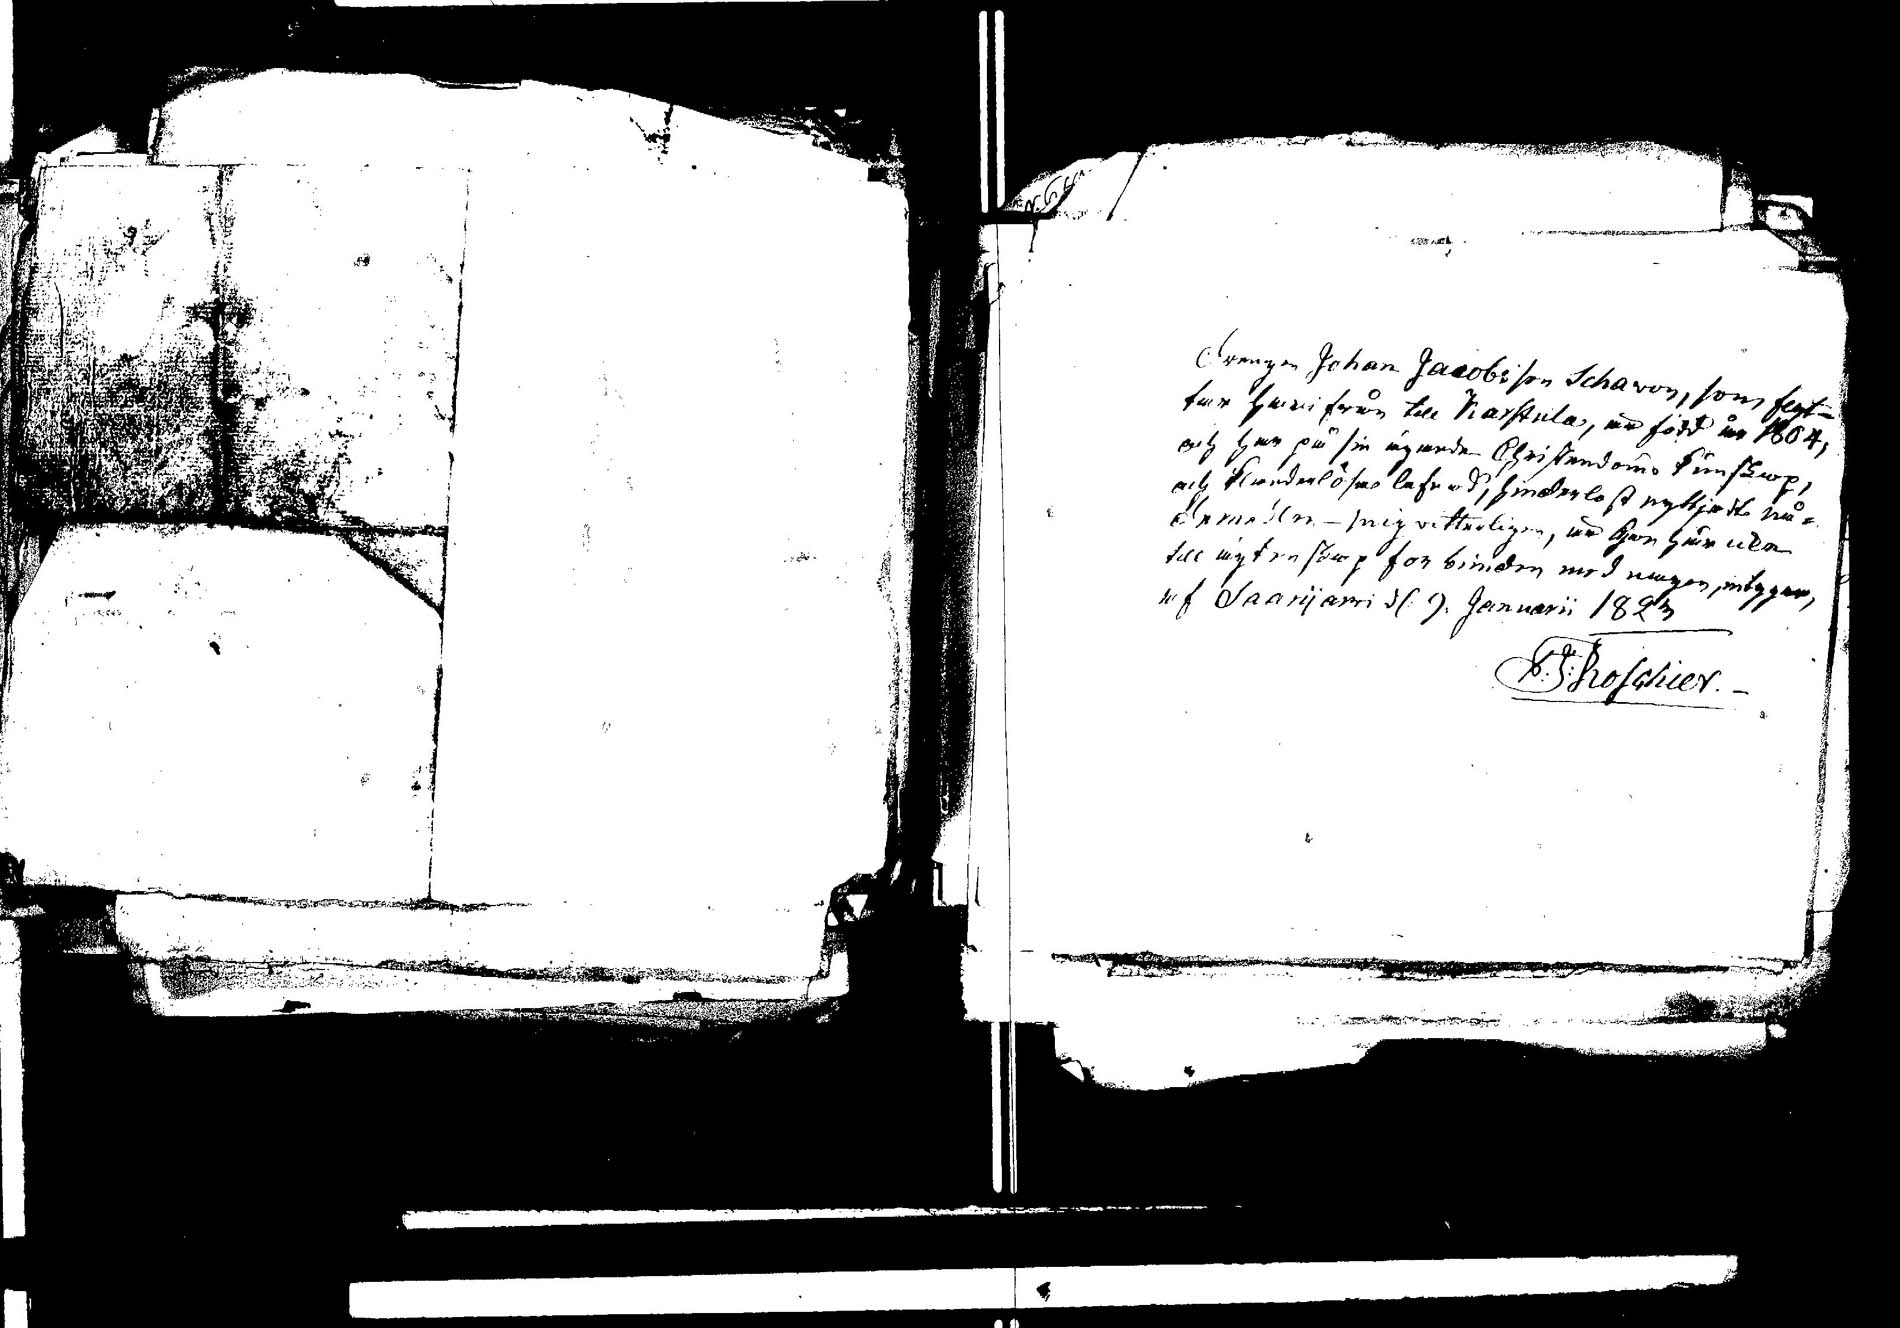 Drengen Johan Jacobsson Schavon, som flyt-
tar härifrån till Karstula, är född år 1804,
och har på sin ägande Christendoms kunskap,
och klanderlösa lefnad, hinderlöst nyttjadt nå-
demedlen – mig vitterligen, är han här ickе
till ägtenskap förbunden med någon, intygar,
af Saarijarvi d. 9. Januarii 1823
Roschier. –